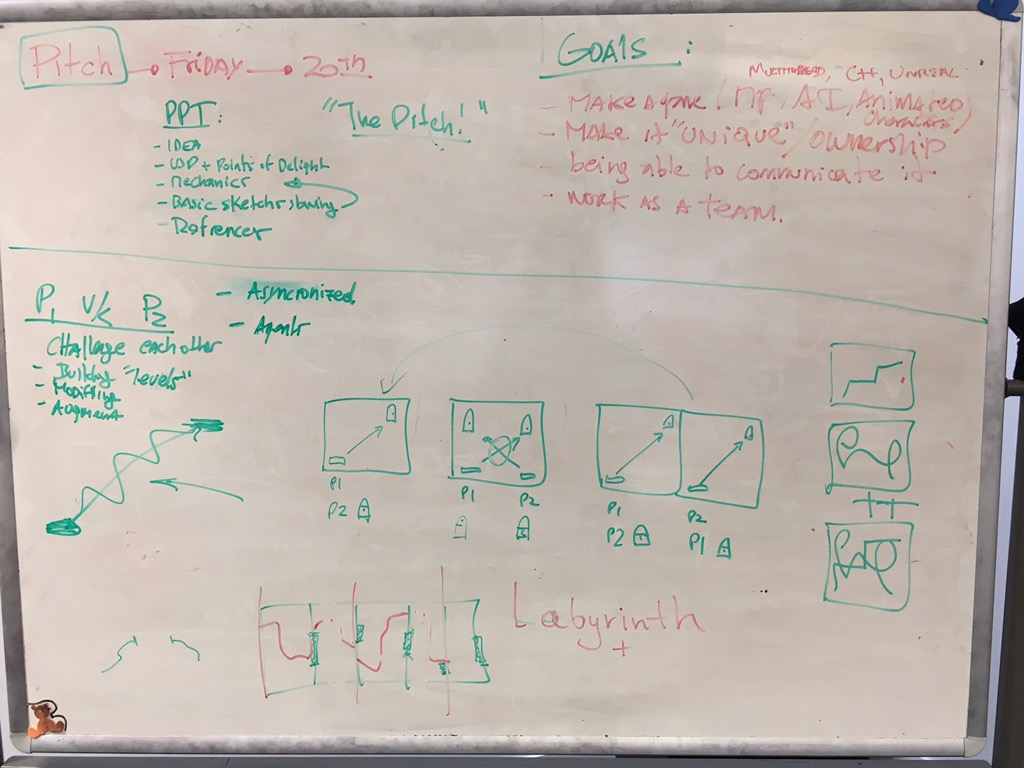 Pitch → FRIDAY → 20th
PPT:
- IDEA
- USP + Points of Delight
- Mechanics
- BASIC sketches showing
- Refrences
"The Pitch!"
GOALS :
MULTITHREAD, C++, UNREAL
- MAKE A game (MP, AI, Animated
Characters)
- MAKE it "UNIQUE" / OWNERSHIP
- being able to communicate it
- WORK AS A TEAM.
P1 V/S P2
- Asyncronized
- Agents
CHAllage each other
- Building "levels"
- Modifling
- Augment
P1
P2
P1 P2
P1
P2
P2
P1
Labyrinth
+